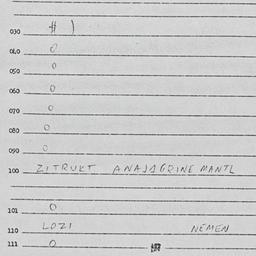 030 # )
040 0
050 0
060 0
070 0
080 0
090 0
100 ZITRUKT
101 0
110 LOZI NEMEN
111 0